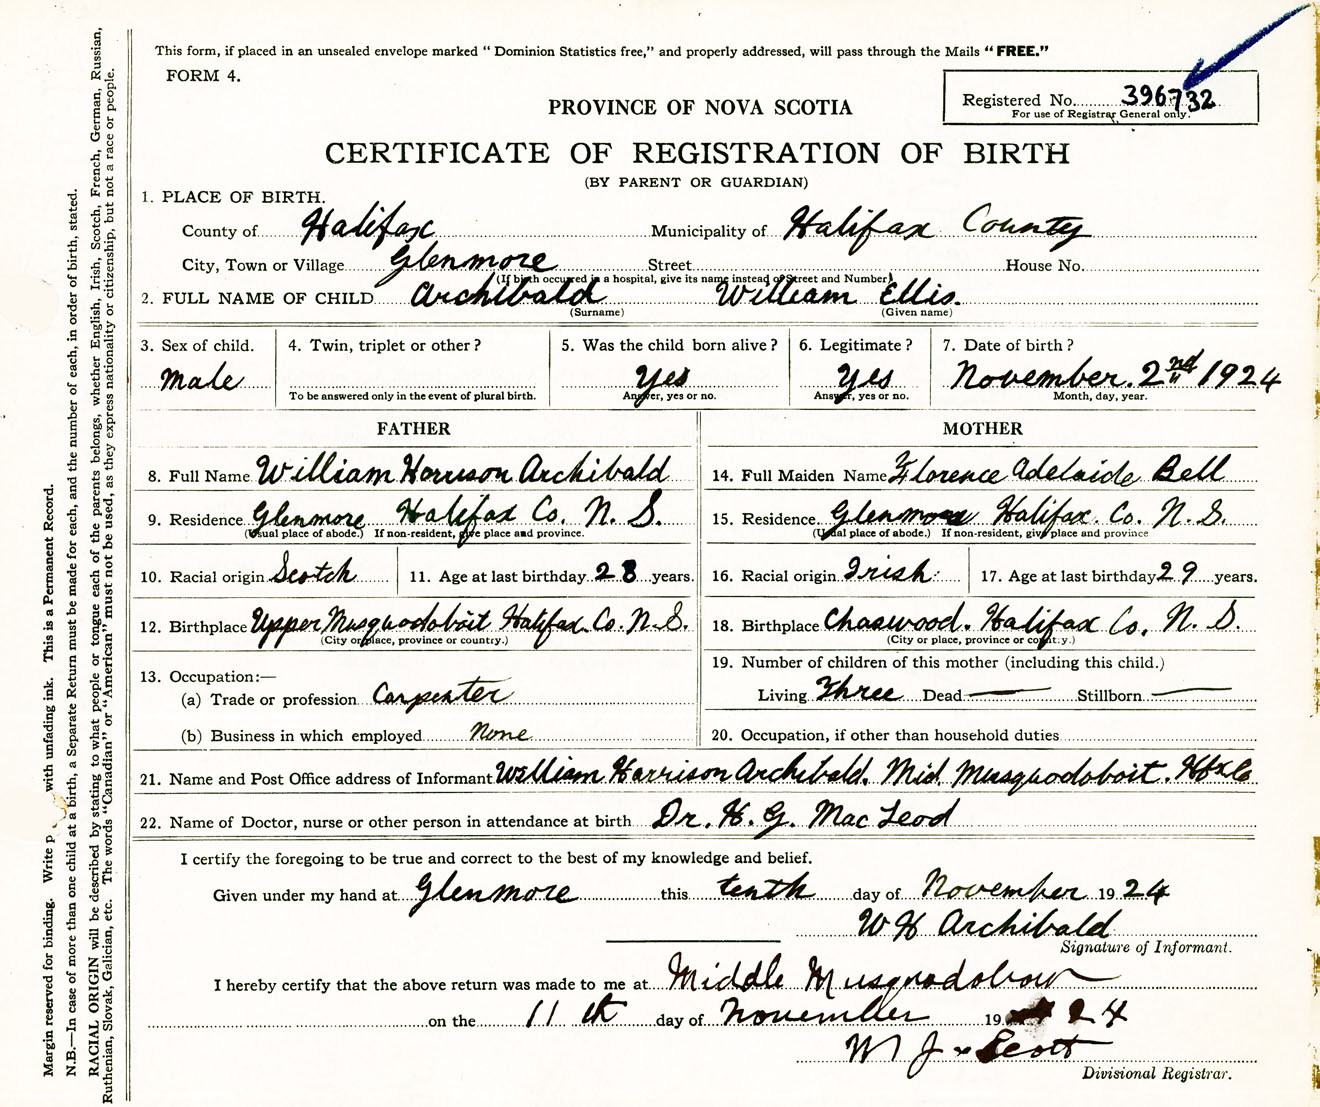 This form, if placed in an unsealed envelope marked “ Dominion Statistics free,” and properly addressed, will pass through the Mails “ FREE.”
FORM 4.
Registered No. 396732
For use of Registrar General only.
PROVINCE OF NOVA SCOTIA
CERTIFICATE OF REGISTRATION OF BIRTH
(BY PARENT OR GUARDIAN)
1. PLACE OF BIRTH.
County of Halifax Municipality of Halifax County
City, Town or Village Glenmore Street House No.
(If birth occurred in a hospital, give its name instead of Street and Number)
2. FULL NAME OF CHILD Archibald William Ellis.
(Surname) (Given name)
3. Sex of child. 4. Twin, triplet or other ? 5. Was the child born alive ? 6. Legitimate ? 7. Date of birth ?
Male Yes Yes November. 2nd 1924
To be answered only in the event of plural birth. Answer, yes or no. Answer, yes or no. Month, day, year.
FATHER MOTHER
8. Full Name William Harrison Archibald 14. Full Maiden Name Florence Adelaide Bell
9. Residence Glenmore Halifax Co. N. S. 15. Residence Glenmore Halifax. Co. N. S.
(Usual place of abode.) If non-resident, give place and province. (Usual place of abode.) If non-resident, give place and province
10. Racial origin Scotch 11. Age at last birthday 28 years. 16. Racial origin Irish. 17. Age at last birthday 29 years.
12. Birthplace Upper Musquodoboit Halifax. Co. N. S. 18. Birthplace Chaswood. Halifax Co. N. S.
(City or place, province or country.) (City or place, province or country.)
13. Occupation:— 19. Number of children of this mother (including this child.)
(a) Trade or profession Carpenter Living Three Dead — Stillborn —
(b) Business in which employed None 20. Occupation, if other than household duties
21. Name and Post Office address of Informant William Harrison Archibald. Mid. Musquodoboit. Hfx Co
22. Name of Doctor, nurse or other person in attendance at birth Dr. H. G. MacLeod
I certify the foregoing to be true and correct to the best of my knowledge and belief.
Given under my hand at Glenmore this tenth day of November 1924
W H Archibald
Signature of Informant.
I hereby certify that the above return was made to me at Middle
on the 11th day of November 19 24
W J Scott
Divisional Registrar.
Margin reserved for binding. Write with unfading ink. This is a Permanent Record.
N.B.—In case of more than one child at a birth, a Separate Return must be made for each, and the number of each, in order of birth, stated.
RACIAL ORIGIN will be described by stating to what people or tongue each of the parents belongs, whether English, Irish, Scotch, French, German, Russian,
Ruthenian, Slovak, Galician, etc. The words “Canadian” or “American” must not be used, as they express nationality or citizenship, but not a race or people.